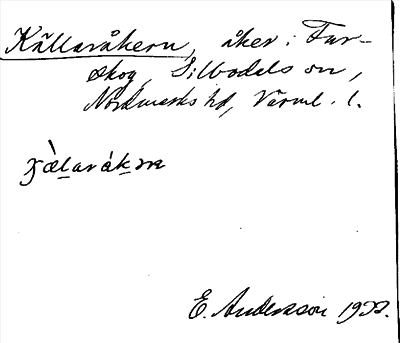 Källaråkern, åker i Fur-
skog, Silbodals sn,
Nordmarks hd, Värml. l.
E. Andersson 1922.